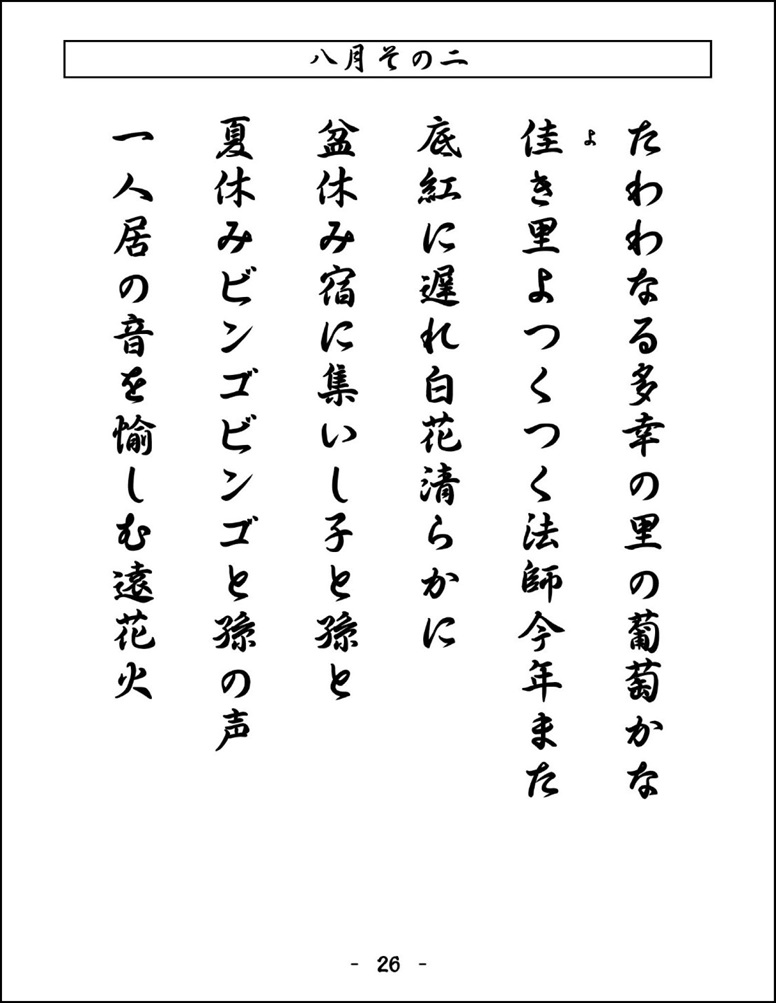 八月その二
たわわなる多幸の里の葡萄かな
佳き里よつくつく法師今年また
よ
底紅に遅れ白花清らかに
盆休み宿に集いし子と孫と
夏休みビンゴビンゴと孫の声
一人居の音を愉しむ遠花火
- 26 -